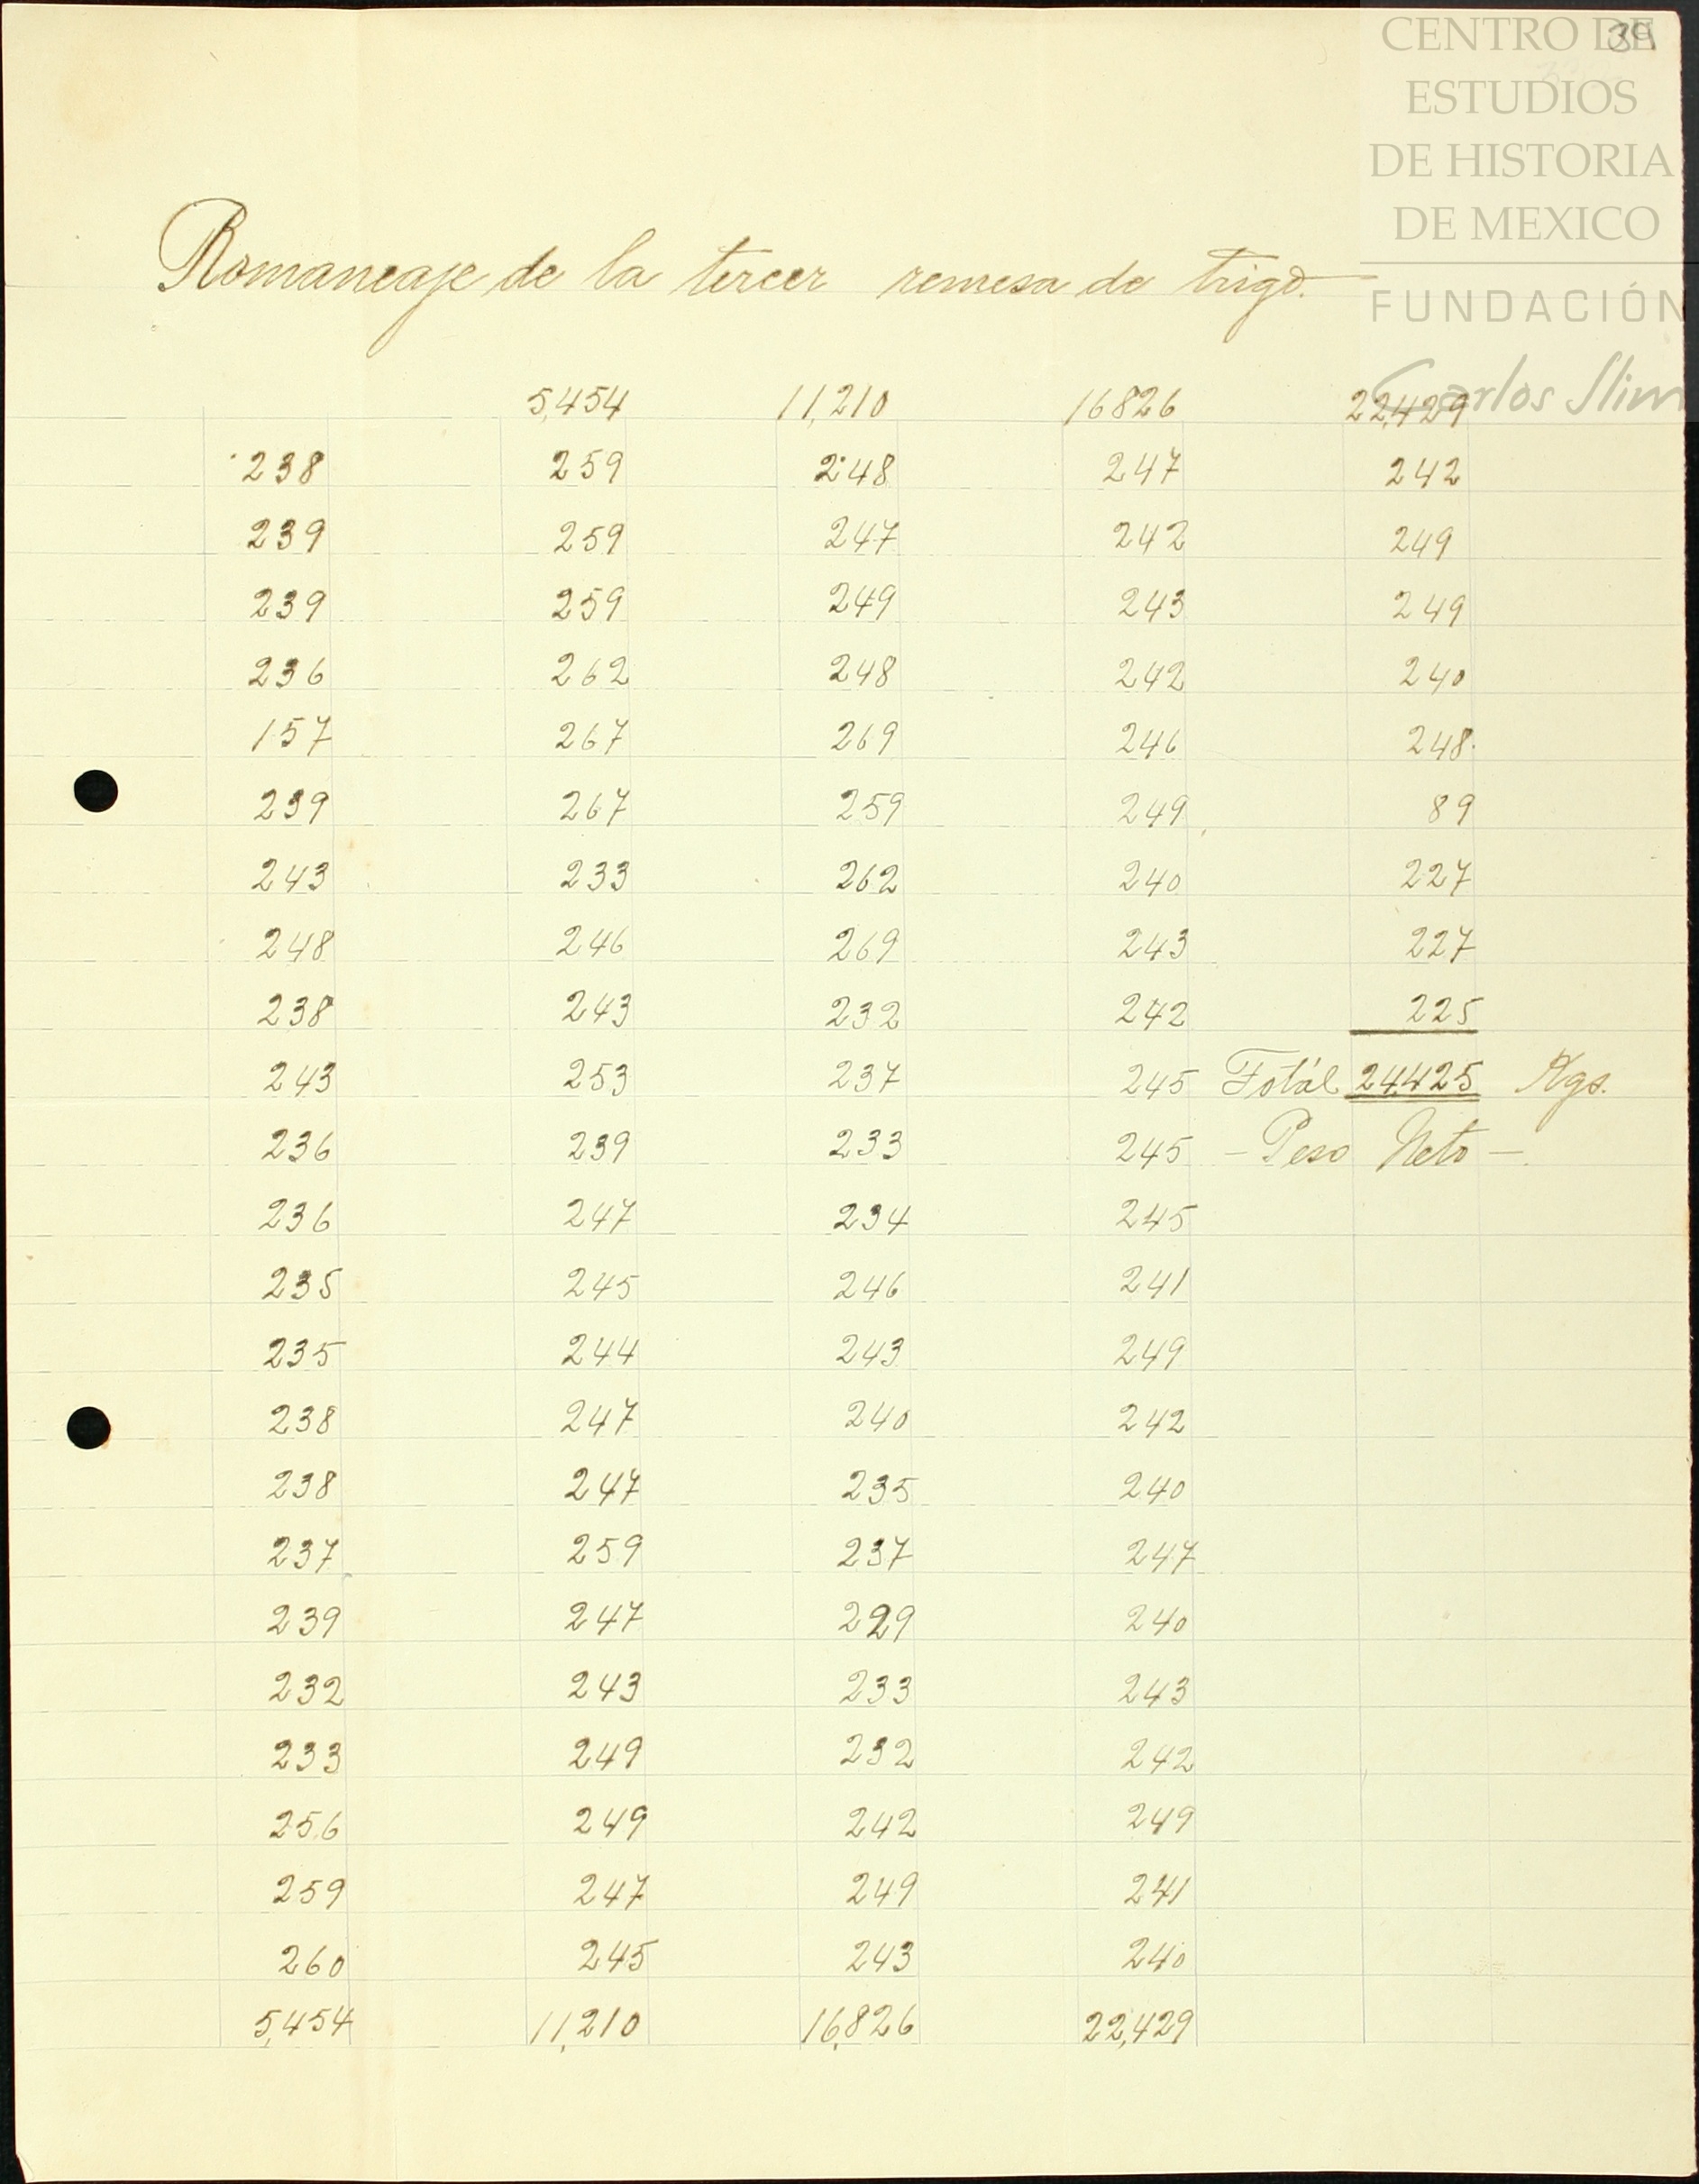 39
CENTRO DE
ESTUDIOS
DE HISTORIA
DE MEXICO
FUNDACIÓN
Carlos Slim
Romaneaje de la tercer remesa de trigo.
5,454 11,210 16826 22,429
238 259 248 247 242
239 259 247 242 249
239 259 249 243 249
236 262 248 242 240
157 267 269 246 248
239 267 259 249 89
243 233 262 240 227
248 246 269 243 227
238 243 232 242 225
243 253 237 245 Totál 24,425 Kgs.
236 239 233 245 – Peso Neto –
236 247 234 245
235 245 246 241
235 244 243 249
238 247 240 242
238 247 235 240
237 259 237 247
239 247 229 240
232 243 233 243
233 249 232 242
256 249 242 249
259 247 249 241
260 245 243 240
5,454 11,210 16,826 22,429